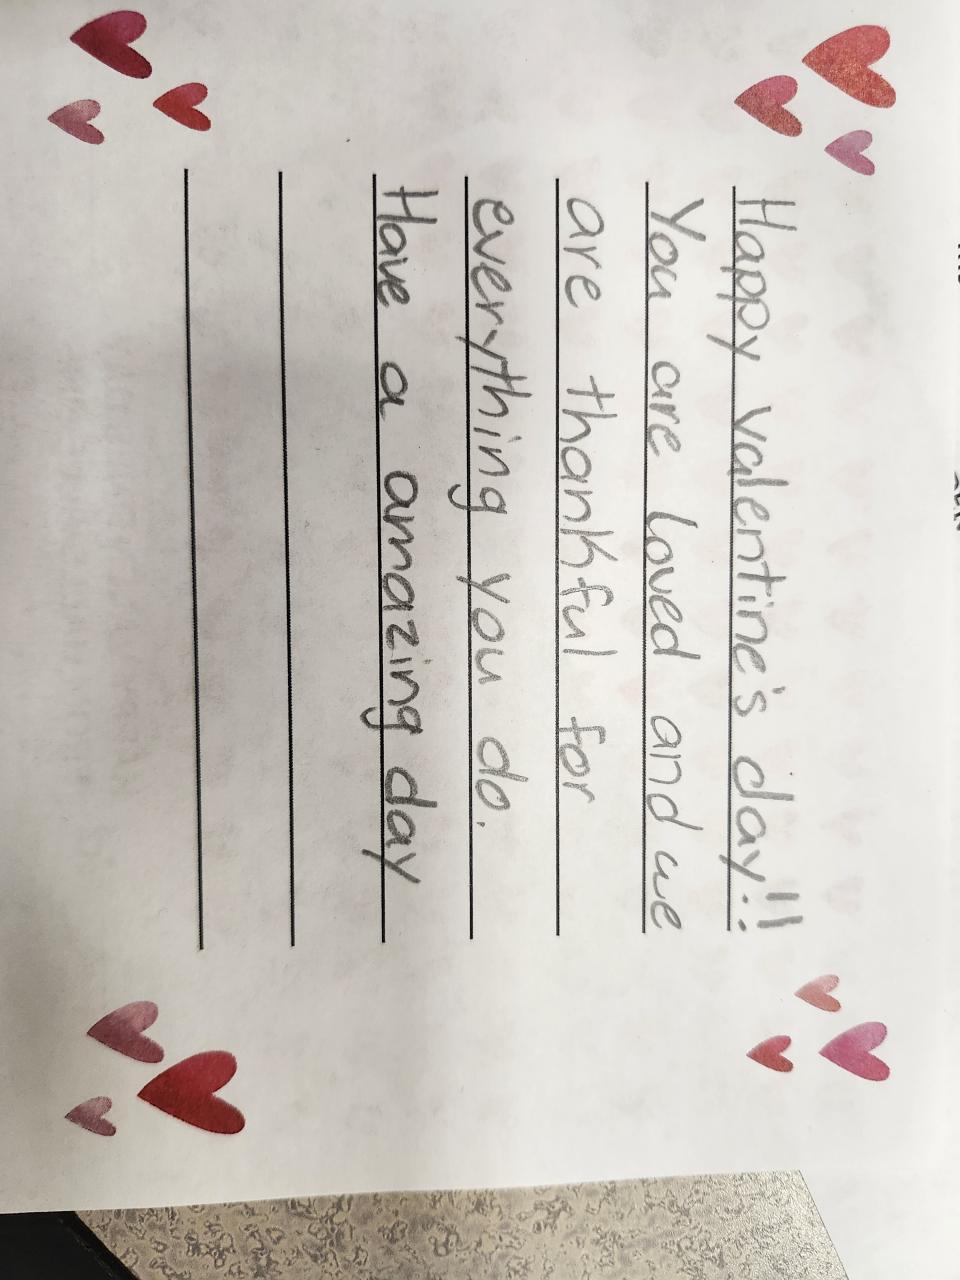 Happy Valentine's day!!
You are loved and we
are thankful for
everything you do.
Have a amazing day